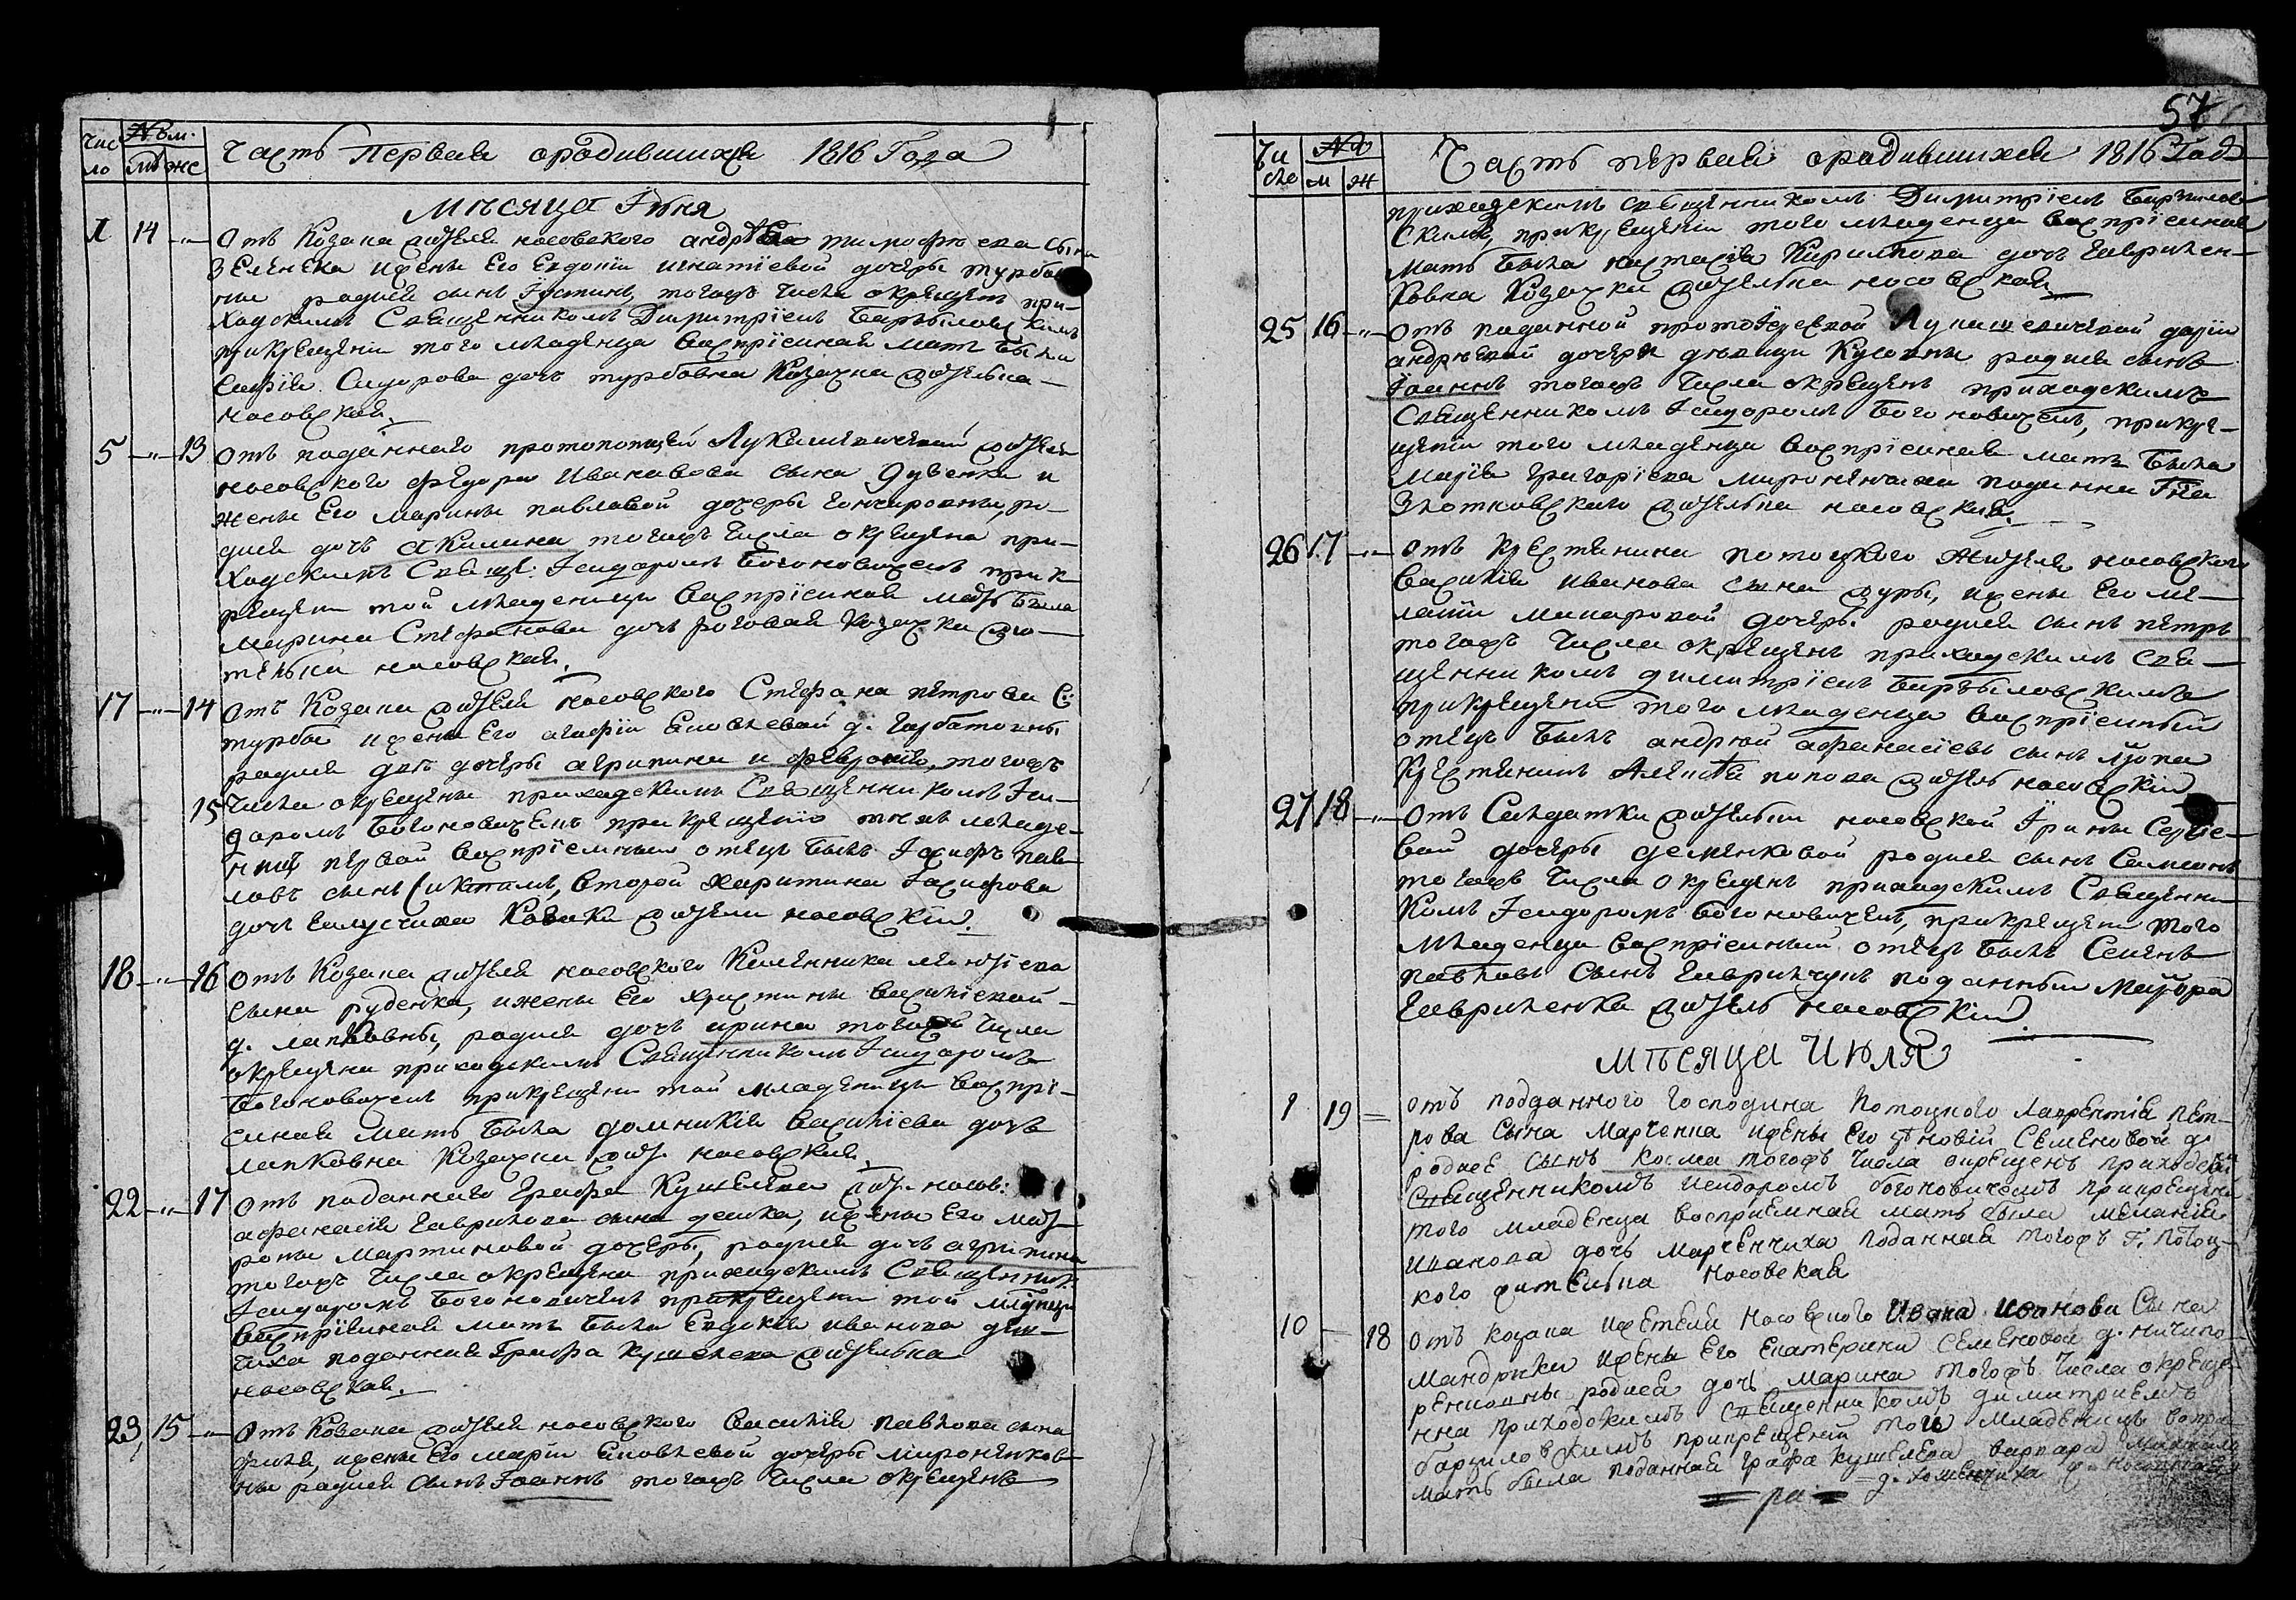 57
Чис
ло
№м.
мъ же
Часть Первая ородившихся 1816 Года
Мѣсяца Іюня
1 14 -"- Отъ Козака жителя носовского андрѣя тимофѣева сына
Зеленска ижены Его Евдокіи игнатіевой дочеры турбов
ны родился сынъ Іустинъ, тогожъ числа окрещенъ при-
ходскимъ Священникомъ Димитріемъ Барзыловскимъ
прикрещеніи того младенца воспріемная мать была
Софія Сидорова дочь турбовна Козачка жителька
носовская.
5 -"- 13 Отъ поданнаго протопопщей Лукашевичевой жителя
носовского Федора Иванавова сына Дувенка и
жены Его марины павловой дочеры гончаровны, ро-
дися дочь Акилина тогожъ числа окрещена при-
ходскимъ Свящ: Ісидоромъ Богоновичемъ прик
рещеніи той младеници воспріемная мать была
марина Стефанова дочь роговая козачка жи-
телька носовская.
17 -"- 14 Отъ Козака жителя носовского Стефана петрова С:
турбы ижены Его агафіи Еновлевой д. Горбатовны
родися двѣ дочеры агрипина и феврониія, тогожъ
15 числа окрещены приходскимъ Священникомъ Іси-
доромъ Богоновичемъ при крещеніи тихъ младе-
ницъ первой воспріемный отецъ былъ Іосифъ пав
ловъ сынъ, второй Харитина Іосифова
дочь Козаки жители носовскіи.
18 -"- 16 Отъ Козака жителя носовского Калинника леонтіева
сына руденка, ижены Его христины василіевой
д. лапковны, родися дочь ирина тогожъ числа
окрещена приходскимъ Священникомъ Ісидоромъ
Богоновичемъ прикрещеніи той младеници воспрі-
емная мать была домникія василіева дочь
лапковна Козачка жит. носовская.
22 -"- 17 Отъ поданнаго Графа Кушелева жит. носов:
афанасія Гаврилова сына дешка, ижены Его мат
роны мартиновой дочеры, родися дочь агрипина
тогожъ числа окрещена приходскимъ Священник:
Ісидоромъ Богоновичемъ прикрещеніи той младеници
воспріемная мать была Евдокія иванова деш-
чиха поданная Графа Кушелева жителька
носовская.
23 15 -"- Отъ Козака жителя носовского василія павлова сына
филя, ижены Его маріи Еновлевой дочеры миронинков
ны родися сынъ Іоаннъ тогожъ числа окрещенъ
Чи
сло
№
м ж
Часть первая ородившихся 1816 Года
приходскимъ священникомъ Димитріемъ Барзилов
скимъ, прикрещеніи того младенца воспріемная
мать была настасія Кирилова дочь Гаврилен-
ковна Козачка жителька носовская
25 16 -"- Отъ поданной протоіереевой Лукашевичевой даріи
андрѣевой дочери дѣвици Кусовны родися сынъ
Іоаннъ тогожъ числа окрещенъ приходскимъ
Священникомъ Ісидоромъ Богоновичемъ, прикре-
щеніи того младенца воспріемная мать была
марія григоріева миронинчиха поданна Гна
Злотковского жителька носовская.
26 17 -"- Отъ Крестянина потоцкого жителя носовского
василія иванова сына дуры, ижены Его ме-
ланіи макаровой дочеры родися сынъ петръ
тогожъ числа окрещенъ приходскимъ свя-
щенникомъ димитріемъ Барзыловскимъ
прикрещеніи того младенца воспріемный
отецъ былъ андрей афанасіевъ сынъ
Крестянинъ попова житель носовскій
27 18 -"- Отъ Салдатки жительки носовской Ірины Сергіе-
вой дочеры деменковой родися сынъ Сампсонъ
тогожъ числа окрещенъ приходскимъ Священни
комъ Ісидоромъ Богоновичемъ, прикрещеніи того
младенца воспріемный отецъ былъ Семенъ
павловъ сынъ Гаврилчукъ поданный майора
Гавриленка житель носовскій.
Мѣсяца Июля
1 19 = отъ подданного господина Потоцкого Лаврентія Пет-
рова сына Марченка ижены его зѣновіи Семеновой д.
родися сынъ косма тогожъ числа окрещенъ приходски
священникомъ исидоромъ богоновичемъ прикрещеніи
того младенца воспріемная мать была меланія
иванова дочь марченчиха поданная тогожъ Г: потоц-
кого жителька носовская
10 — 18 отъ козака ижителя носовского Ивана Иванова сына
Мандрики ижены его екатерини семеновой д. ничипо
ренковны родися дочь марина тогожъ числа окреще
нна приходскимъ священникомъ димитриемъ
барзиловскимъ прикрещеніи той младеници воспри
мать была поданная графа кушелева варвара михайло
д. хоменчиха ж. носовская
= ра =